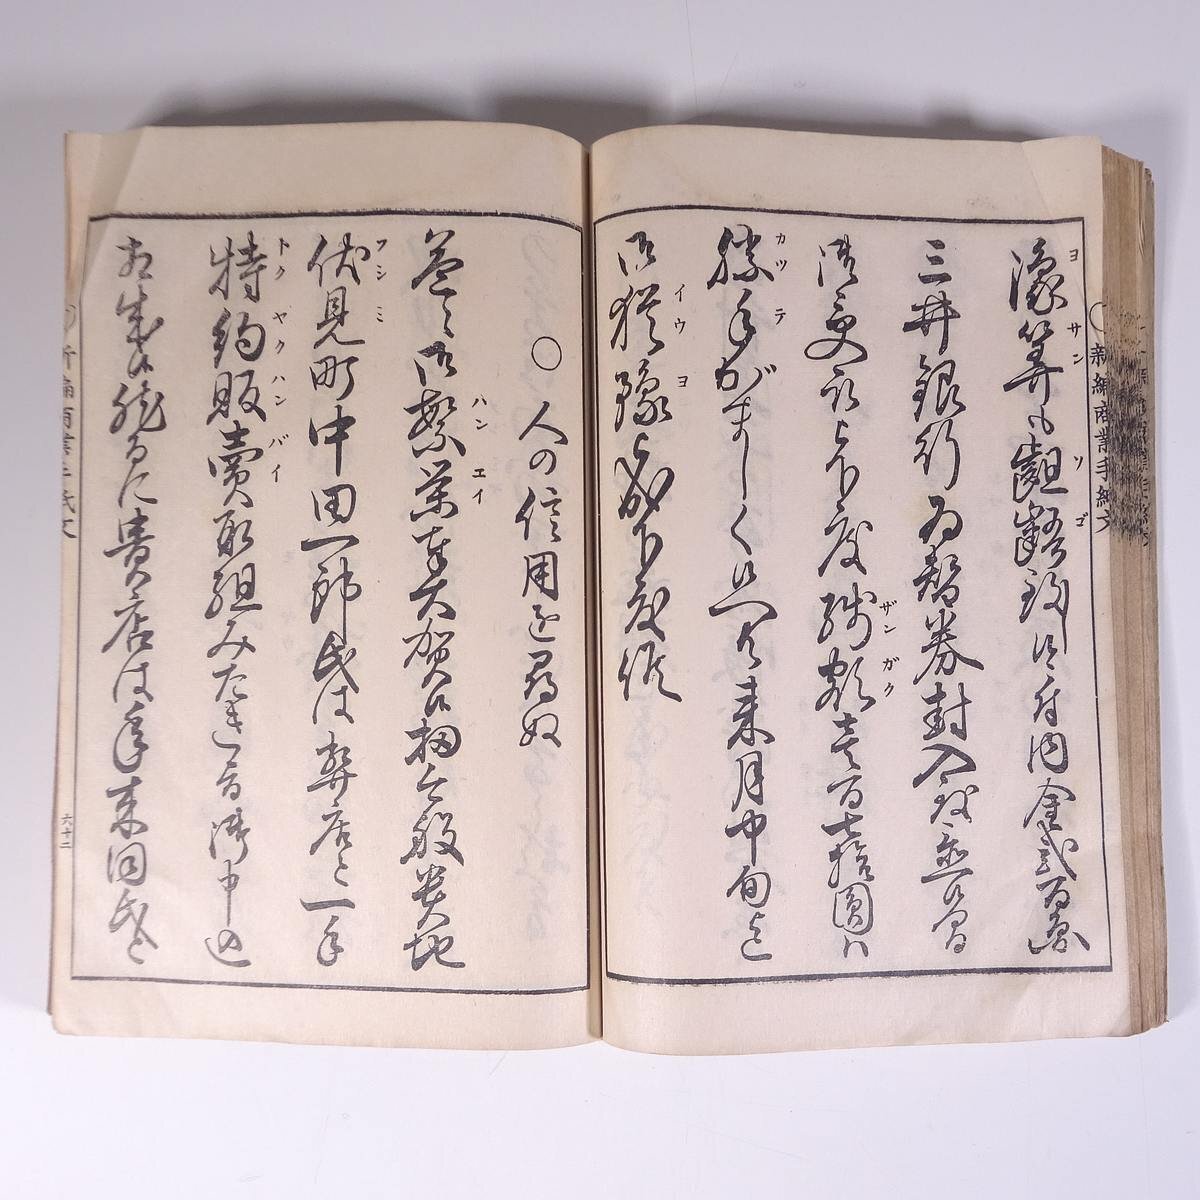 豫算も齟齬致し候付内金貳百圓
ヨサン
ソゴ
三井銀行為替券封入致
御受取被下度残額壱百七拾圓ハ
ザンガク
勝手がましく候へ共来月中旬迄
カツテ
御猶豫被成下度候
イウヨ
新編商業手紙文
○人の信用を尋ぬ
益々御繁栄奉大賀候扨今般貴地
ハンエイ
伏見町中田一郎氏は弊店と一手
フシミ
特約販賣取組みたき旨御申込
トクヤクハンバイ
相成候就るに貴店は年来同氏と
六十二